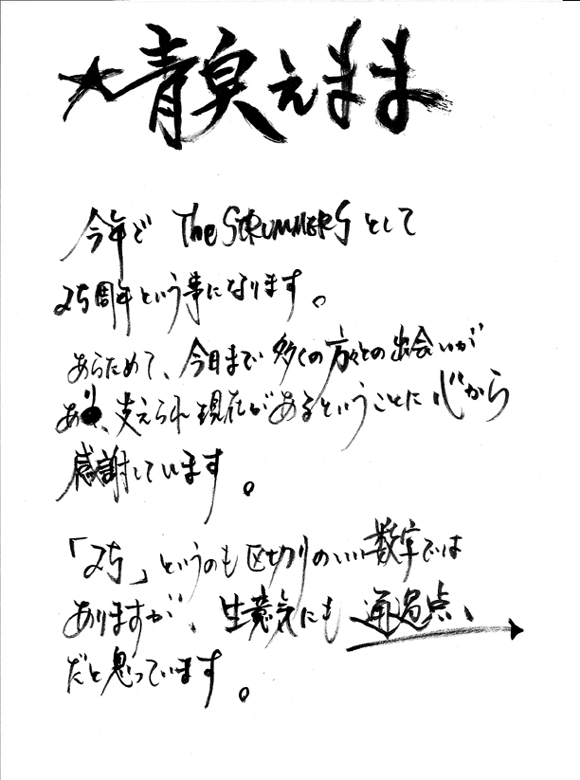 ★青臭えまま
今年で The STRUMMERS として
25周年という事になります。
あらためて、今日まで多くの方々との出会いが
あり、支えられ現在があるということに心から
感謝しています。
「25」というのも区切りのいい数字では
ありますが、生意気にも通過点、
だと思っています。